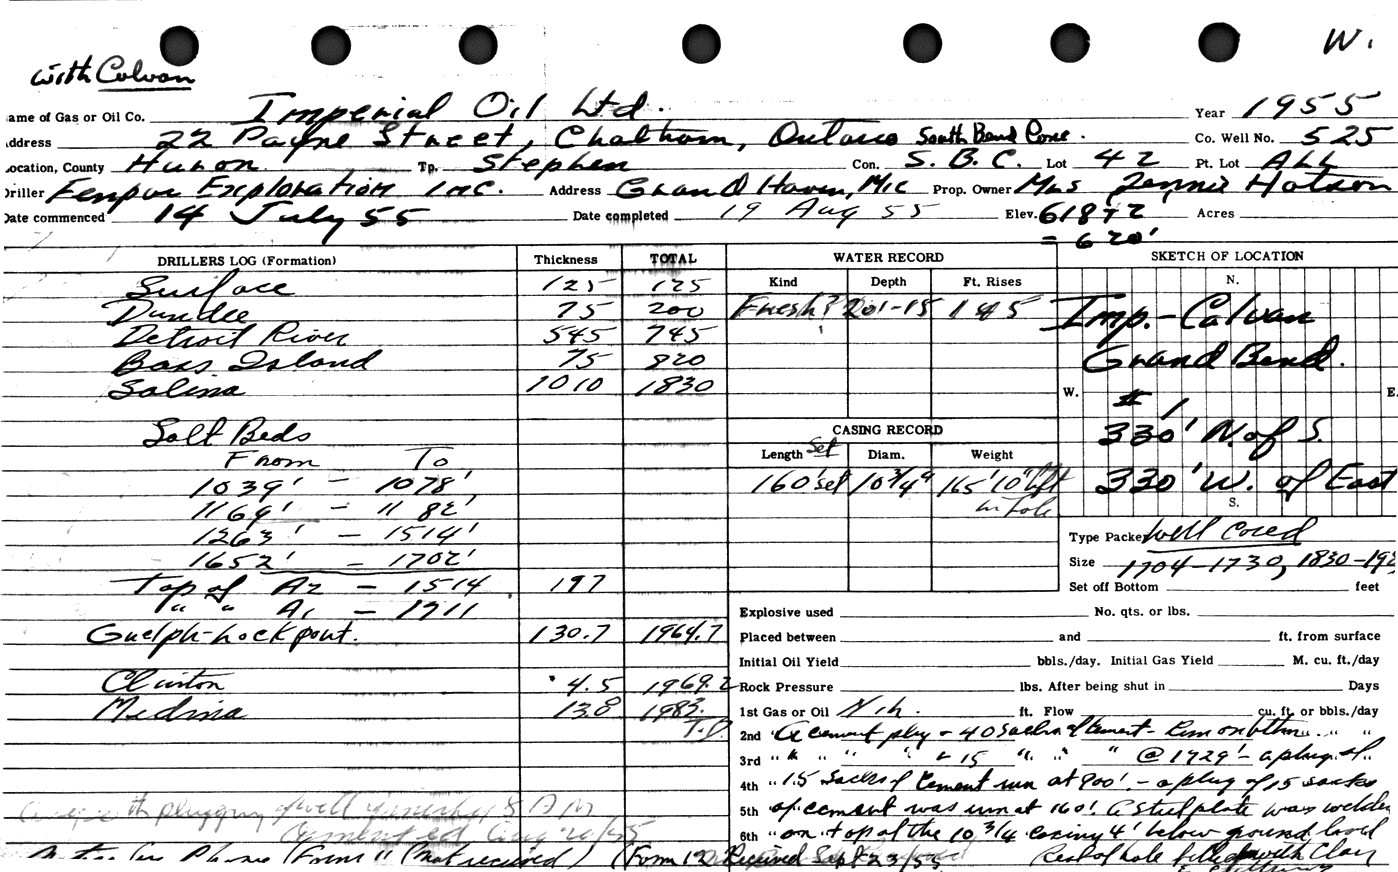 W.
with Calvan
ame of Gas or Oil Co. Imperial Oil Ltd. Year 1955
ddress 22 Payne Street, Chatham, Ontario South Bend Conc. Co. Well No. 525
ocation, County Huron Tp. Stephen Con. S.B.C. Lot 42 Pt. Lot ALL
Driller Exploration Inc. Address Grand Haven, Mic Prop. Owner Mrs Jennie Hotson
Date commenced 14 July 55 Date completed 19 Aug 55 Elev. 618+2' Acres
= 620'
DRILLERS LOG (Formation) Thickness TOTAL WATER RECORD SKETCH OF LOCATION
Kind Depth Ft. Rises N.
Surface 125 125
Dundee 75 200 Fresh? 201-15 145 Imp.-Calvan
Detroit River 545 745
Bass Island 75 820 Grand Bend.
Salina 1010 1830 W. E.
# 1
Salt Beds CASING RECORD 330' N. of S.
From To Length Set Diam. Weight
1039' - 1078' 160' set 10 3/4" 165' 10" left 330' W. of East
in hole
1169' - 1182' S.
1263' - 1514' Type Packer Well Cored
1652' - 1702' Size 1704-1730, 1830-
Top of A2 - 1514 197 Set off Bottom feet
" " A1 - 1711 Explosive used No. qts. or lbs.
Guelph-Lockport. 130.7 1964.7 Placed between and ft. from surface
Initial Oil Yield bbls./day. Initial Gas Yield M. cu. ft./day
Clinton 4.5 1969.2 Rock Pressure lbs. After being shut in Days
Medina 13.8 1983. 1st Gas or Oil Nil. ft. Flow cu. ft. or bbls./day
T.D. 2nd " A cement plug - 40 sacks of cement - on bttm " "
3rd " " " " 15 " " " @ 1729' - a plug of "
4th " 15 sacks of cement run at 900' - a plug of 15 sacks
5th " of cement was run at 160'. A steel plate was welde
6th " on top of the 10 3/4 casing 4' below ground level
plugging of well 5 P.M.
cemented Aug
(Form 11 (Not received) (Form 12 Received Sept 23/55 Rest of hole filled with Clay